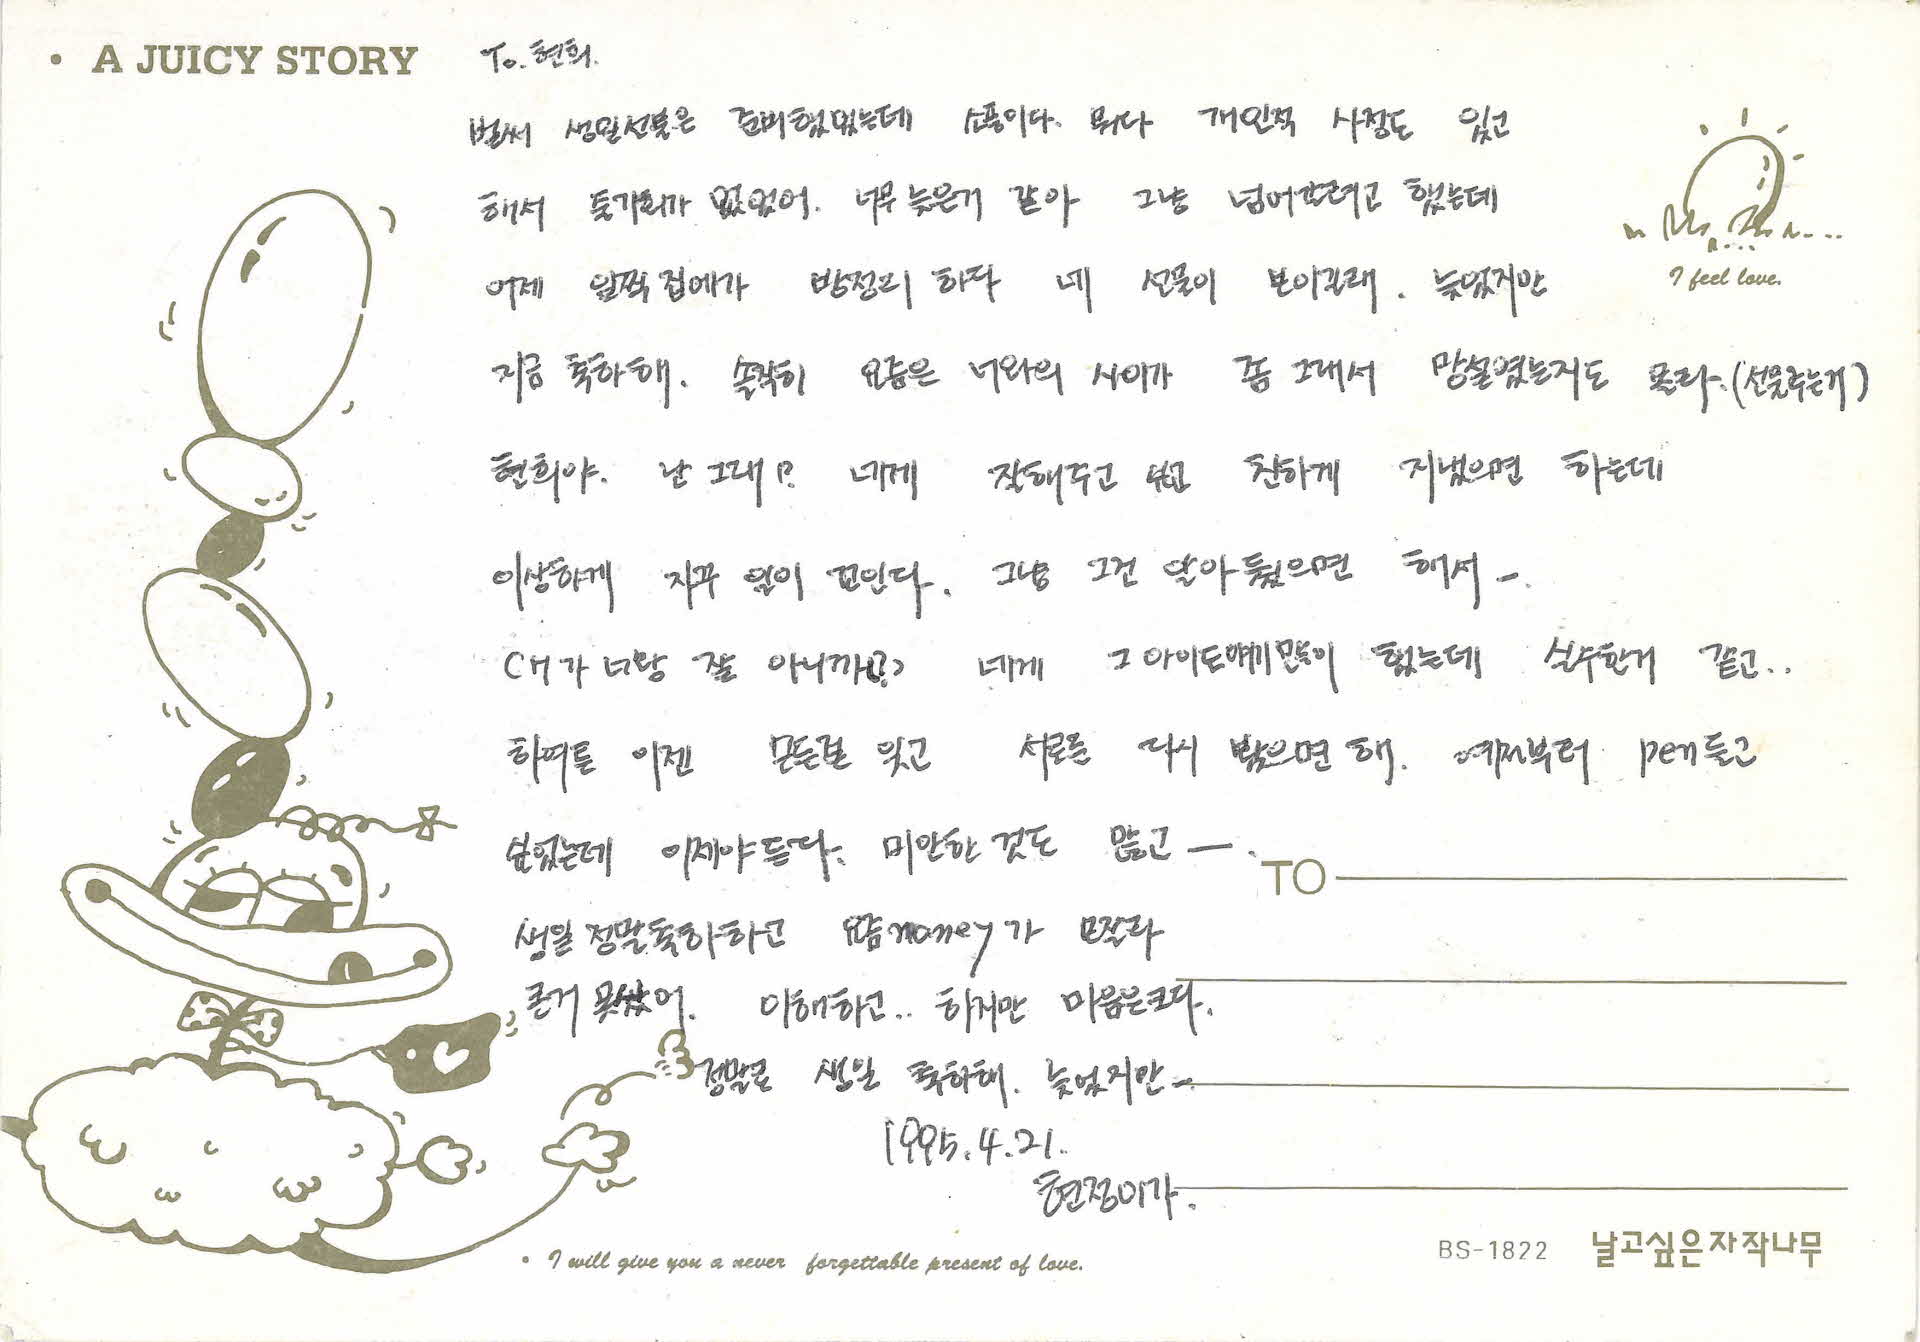 A JUICY STORY
To. 현희.
벌써 생일선물은 준비했었는데 소풍이다. 뭐다 개인적 사정도 있고
해서 줄기회가 없었어. 너무 늦은거 같아 그냥 넘어갈려고 했는데
어제 일찍 집에가 방정리 하다 네 선물이 보이길래. 늦었지만
지금 축하해. 솔직히 요즘은 너와의 사이가 좀 그래서 망설였는지도 몰라.(선물주는거)
현희야. 난 그래!? 네게 잘해주고 싶고 친하게 지냈으면 하는데
이상하게 자꾸 일이 꼬인다. 그냥 그건 알아줬으면 해서 -.
(H가 너랑 잘 아니까!?) 네게 그 아이도 얘기 많이 했는데 실수한거 같고..
하여튼 이젠 모든걸 잊고 서로를 다시 봤으면 해. 예저부터 pen들고
싶었는데 이제야 든다. 미안한 것도 많고 —.
생일 정말 축하하고 요즘 money가 모잘라
큰거 못샀어. 이해하고.. 하지만 마음은 크다.
정말로 생일 축하해. 늦었지만 -.
1995. 4. 21.
현정이가.
I feel love.
TO
I will give you a never forgettable present of love.
BS-1822 날고싶은자작나무